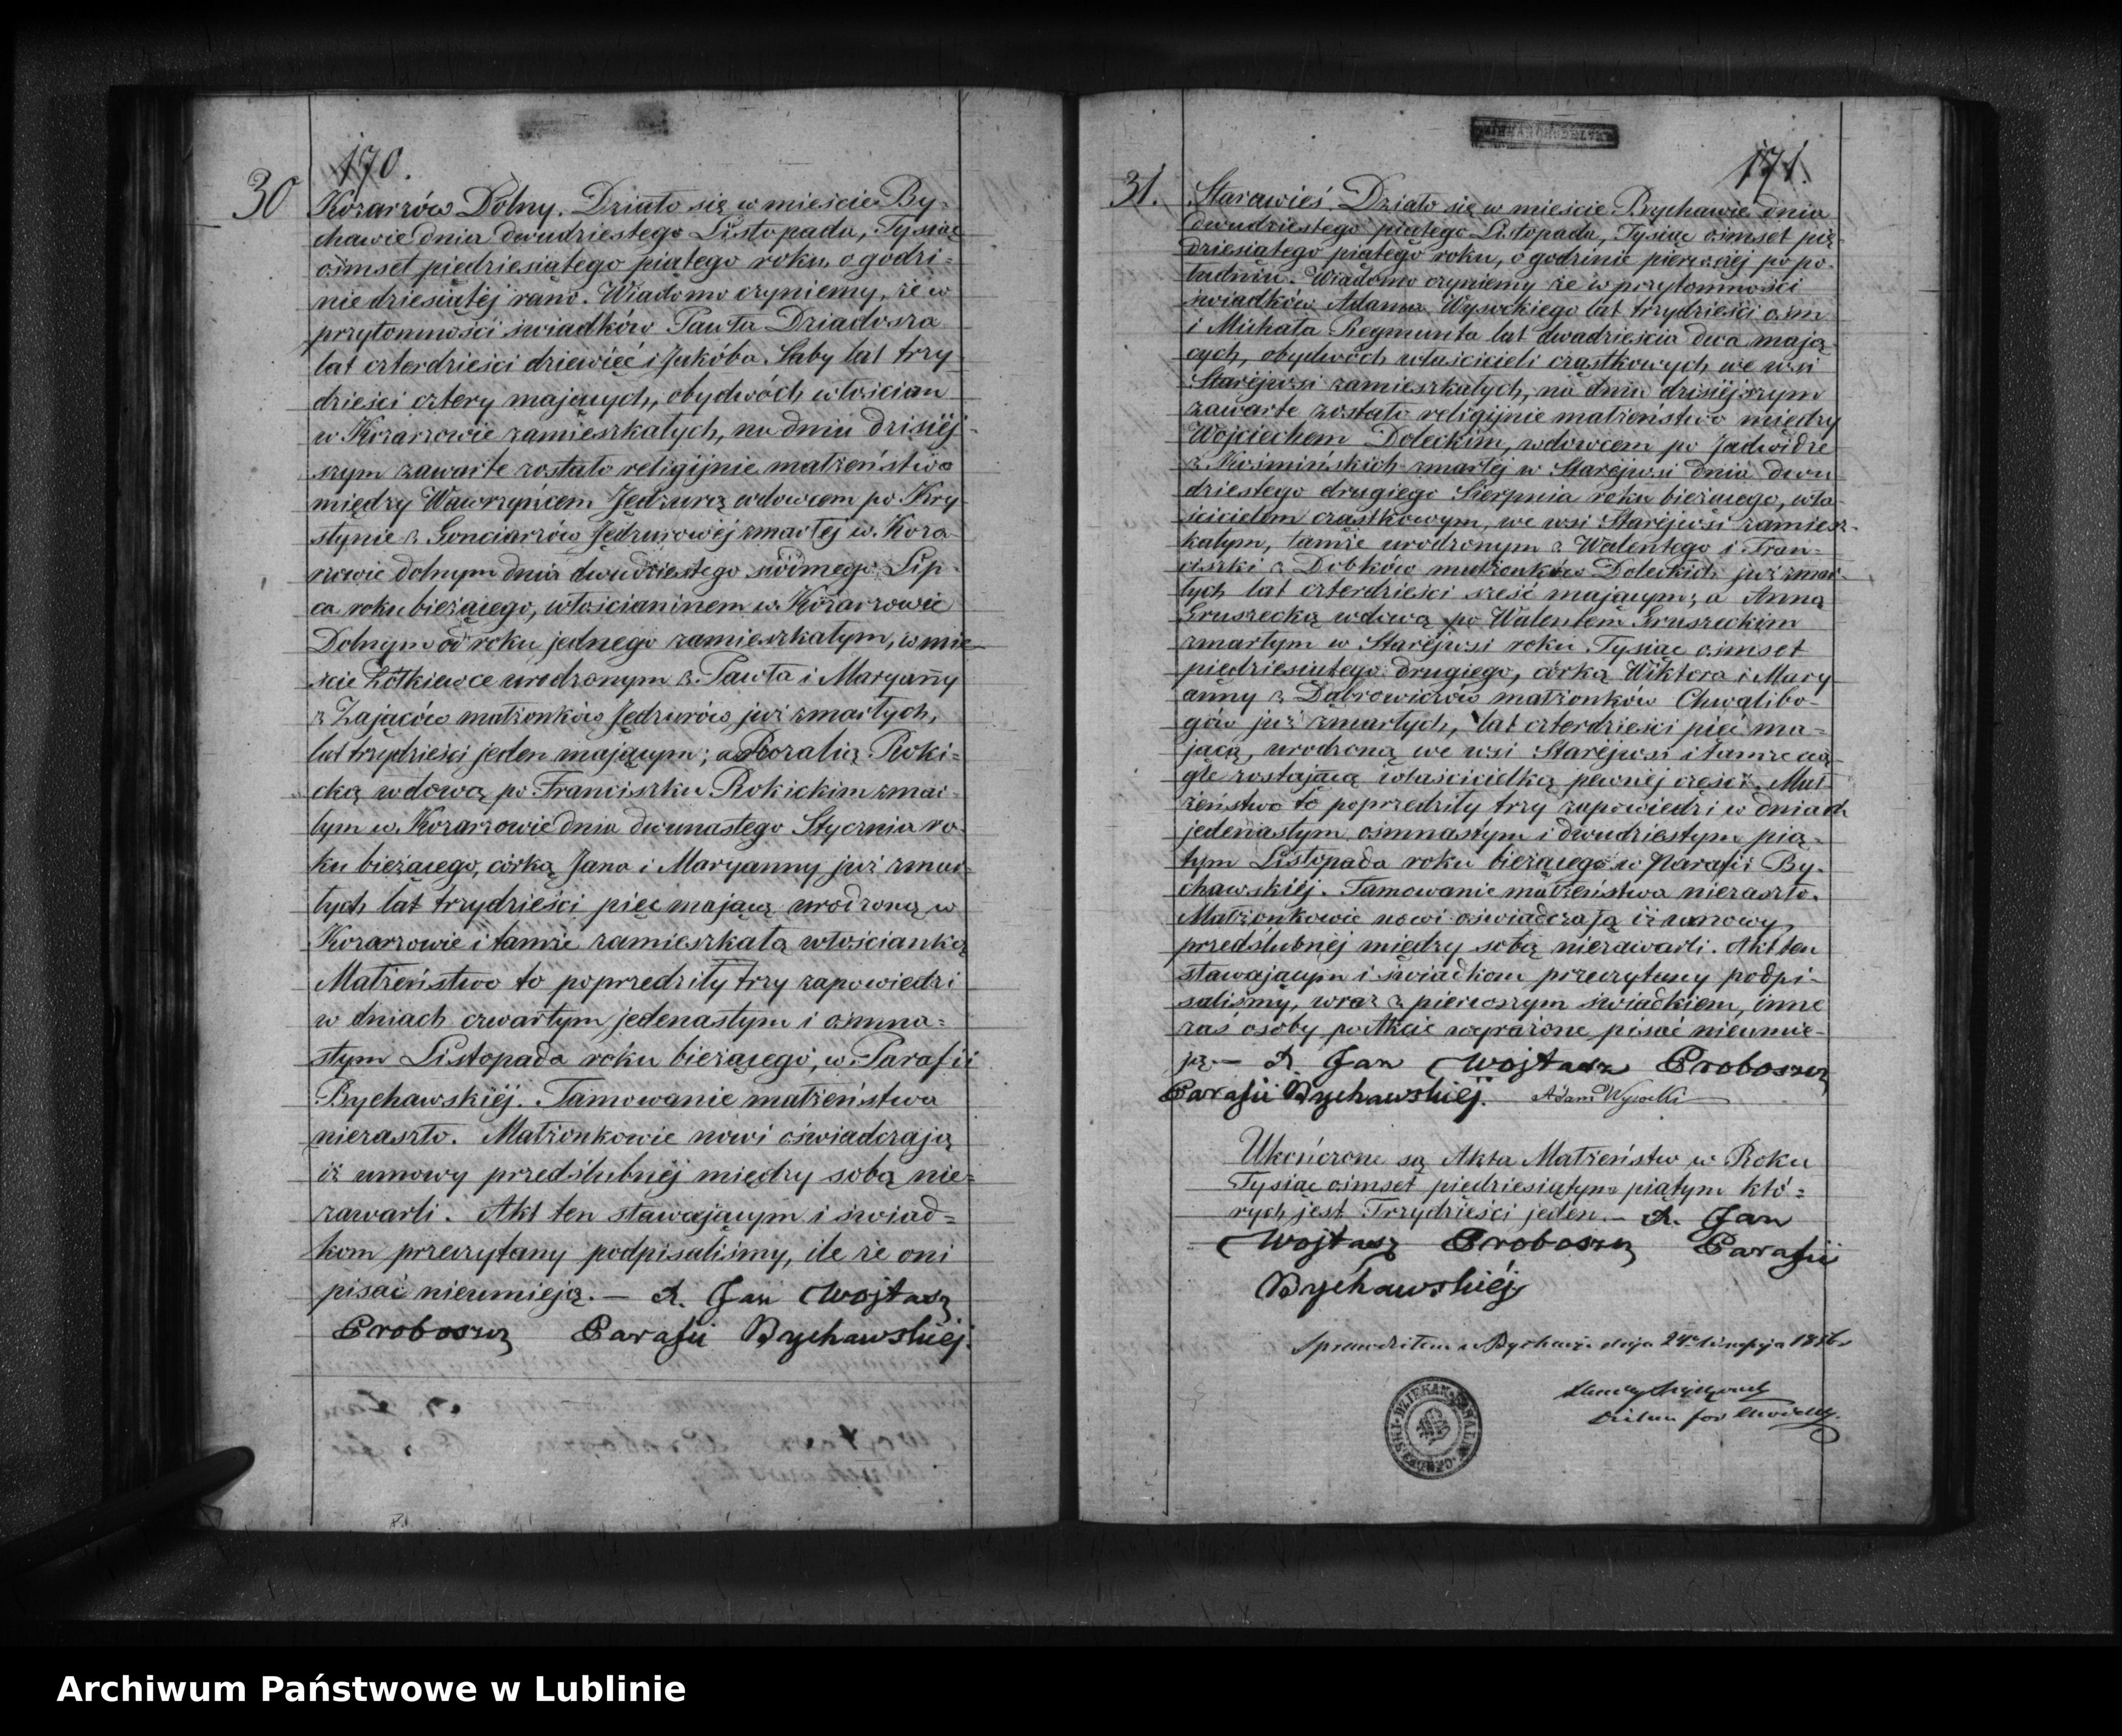 170.
30
Kozarzów Dolny. Działo się w mieście By-
chawie dnia dwudziestego Listopada, Tysiąc
ośmset piędziesiątego piątego roku, o godzi-
nie dziesiątéj rano. Wiadomo czyniemy, że w
przytomności świadków Pawła Dziadosza
lat czterdzieści dziewięć i Jakóba Saby lat trzy
dzieści cztery mających, obydwóch włościan
w Kozarzowie zamieszkałych, na dniu dzisiéj-
szym zawarte zostało religijnie małżeństwo
między Wawrzyńcem Jędrurą wdowcem po Kry
stynie z Gonciarzów Jędrurowéj zmarłéj w Koza
rzowie dolnym dnia dwudziestego siódmego Lip-
ca roku bieżącego, włościaninem w Kozarzowie
Dolnym od roku jednego zamieszkałym, w mie-
ście Żółkiewce urodzonym z Pawła i Maryanny
z Zająców małżonków Jędrurów już zmarłych,
lat trzydzieści jeden mającym; a Rozalią Roki-
cką wdową po Franciszku Rokickim zmar-
łym w Kozarzowie dnia dwunastego Stycznia ro-
ku bieżącego, córką Jana i Maryanny już zmar-
łych lat trzydzieści pięć mającą urodzoną w
Kozarzowie i tamże zamieszkałą włościanką
Małżeństwo to poprzedziły trzy zapowiedzi
w dniach czwartym jedenastym i ośmna-
stym Listopada roku bieżącego, w Parafii
Bychawskiéj. Tamowanie małżeństwa
niezaszło. Małżonkowie nowi oświadczają
iż umowy przedślubnéj między sobą nie-
zawarli. Akt ten stawającym i świad-
kom przeczytany podpisaliśmy, ile że oni
pisać nieumieją. — X. Jan Wojtasz
Proboszcz Parafii Bychawskiej.
171.
31.
Starawieś. Działo się w mieście Bychawie dnia
dwudziestego piątego Listopada, Tysiąc ośmset pię-
dziesiątego piątego roku, o godzinie pierwszéj po po-
łudniu. Wiadomo czyniemy że w przytomności
świadków Adama Wysockiego lat trzydzieści ośm
i Michała Regmunta lat dwadzieścia dwa mają-
cych, obydwóch właścicieli cząstkowych we wsi
Staréjwsi zamieszkałych, na dniu dzisiéjszym
zawarte zostało religijnie małżeństwo między
Wojciechem Doleckim, wdowcem po Jadwidze
z Kośmińskich zmarłéj w Staréjwsi dnia dwu
dziestego drugiego Sierpnia roku bieżącego, wła-
ścicielem cząstkowym, we wsi Staréjwsi zamiesz-
kałym, tamże urodzonym z Walentego i Fran-
ciszki z Dobków małżonków Doleckich już zmar-
łych lat czterdzieści sześć mającym; a Anną
Gruszecką wdową po Walentem Gruszeckim
zmarłym w Staréjwsi roku Tysiąc ośmset
piędziesiątego drugiego, córką Wiktora i Mary
anny z Dąbrowiczów małżonków Chwalibo-
gów już zmarłych, lat czterdzieści pięć ma-
jącą, urodzoną we wsi Staréjwsi i tamże cią-
gle zostającą właścicielką pewnéj części. Mał-
żeństwo to poprzedziły trzy zapowiedzi w dniach
jedenastym ośmnastym i dwudziestym pią-
tym Listopada roku bieżącego w Parafii By-
chawskiéj. Tamowanie małżeństwa niezaszło.
Małżonkowie nowi oświadczają iż umowy
przedślubnéj między sobą niezawarli. Akt ten
stawającym i świadkom przeczytany podpi-
saliśmy, wraz z pierwszym świadkiem, inne
zaś osoby w Akcie wyrażone pisać nieumie-
ją. — X. Jan Wojtasz Proboszcz
Parafii Bychawskiéj. Adam Wysocki
Ukończone są Akta Małżeństw w Roku
Tysiąc ośmset piędziesiątym piątym któ-
rych jest Trzydzieści jeden. — X. Jan
Wojtasz Proboszcz Parafii
Bychawskiéj
Sprawdziłem w Bychawie dnia 24 1856 r
Archiwum Państwowe w Lublinie